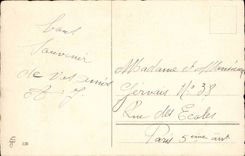 bons
souvenir
de vos amis
Madame et Monsieur
Gervais N° 38
Rue des Ecoles
Paris 5ème arr